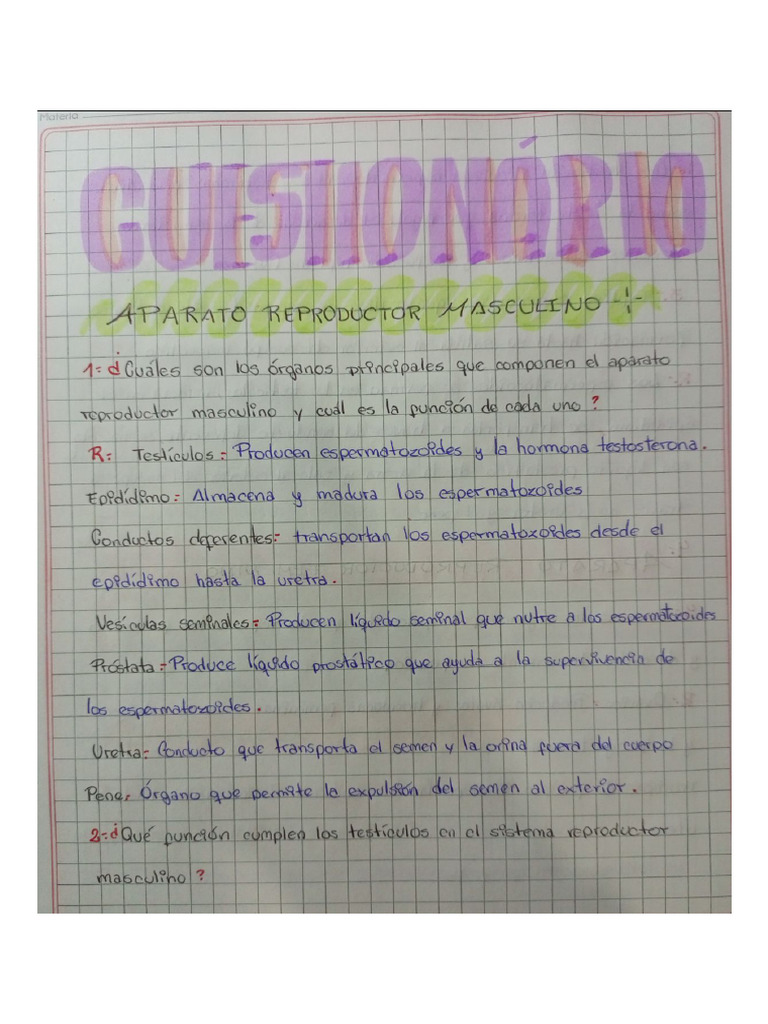 Materia
CUESTIONÁRIO
APARATO REPRODUCTOR MASCULINO
1= ¿Cuáles son los órganos principales que componen el aparato
reproductor masculino y cuál es la función de cada uno?
R: Testículos = Producen espermatozoides y la hormona testosterona.
Epidídimo = Almacena y madura los espermatozoides
Conductos deferentes = transportan los espermatozoides desde el
epidídimo hasta la uretra.
Vesículas seminales = Producen líquido seminal que nutre a los espermatozoides
Próstata = Produce líquido prostático que ayuda a la supervivencia de
los espermatozoides.
Uretra = Conducto que transporta el semen y la orina fuera del cuerpo
Pene, Órgano que permite la expulsión del semen al exterior.
2= ¿Qué función cumplen los testículos en el sistema reproductor
masculino?